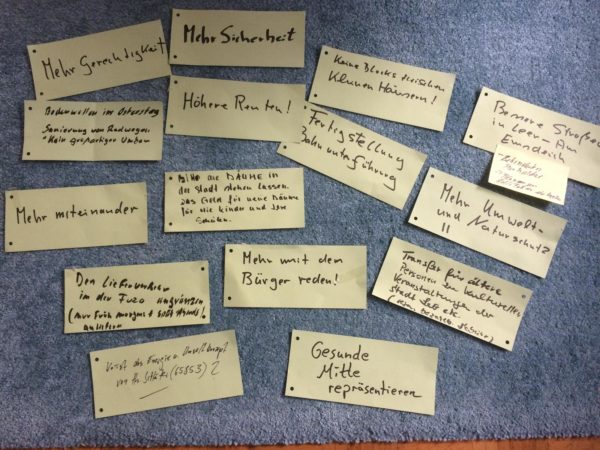 Mehr Gerechtigkeit
Mehr Sicherheit
Keine Blocks zwischen
Kleinen Häusern!
Bodenwellen im Osterstag
Sanierung von Radwegen
Kein großartiger Umbau
Höhere Renten!
Fertigstellung
Bahnunterführung
Bessere
in Leer - Am
Emsdeich
Mehr miteinander
Bitte die Bäume in
der Stadt stehen lassen.
Das Geld für neue Bäume
für die Kinder und den
Schulen.
Mehr Umwelt-
und Naturschutz
!!
Den Lieferverkehr
in der Fuzo
(nur früh morgens + spät Abends!
Mehr mit dem
Bürger reden!
Transfer für ältere
Personen zu kulturellen
Veranstaltungen der
Stadt Leer etc.
von Hr. (65853)?
Gesunde
Mitte
repräsentieren